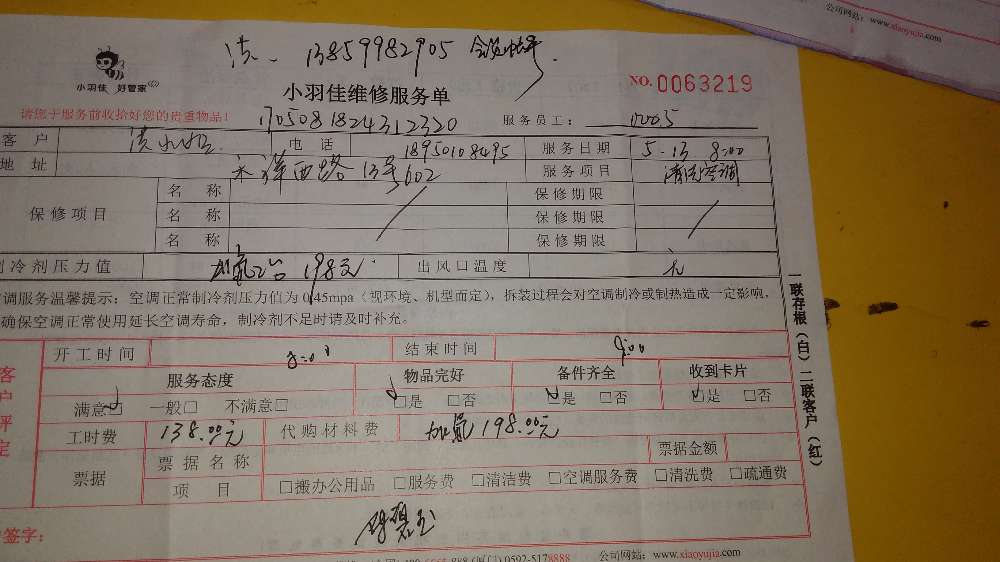 公司网站：www.xiaoyujia.com
洪 13859982905
小羽佳 好管家
小羽佳维修服务单
NO.0063219
请您于服务前收拾好您的贵重物品！
1705081824312320
服务员工：
客 户
电 话 18950108495
服务日期 5.13 8:00
地 址 西路13号602
服务项目 清洗空调
保修项目
名 称
保修期限
名 称
保修期限
名 称
保修期限
制冷剂压力值 198元
出风口温度
调服务温馨提示：空调正常制冷剂压力值为0.45mpa（视环境、机型而定），拆装过程会对空调制冷或制热造成一定影响，
确保空调正常使用延长空调寿命，制冷剂不足时请及时补充。
开工时间 8:00
结束时间 9:00
客户评定
服务态度
物品完好
备件齐全
收到卡片
满意□ 一般□ 不满意□
□是 □否
□是 □否
□是 □否
工时费 138.00元
代购材料费 加氟198.00元
票据
票据名称
票据金额
项 目
□搬办公用品 □服务费 □清洁费 □空调服务费 □清洗费 □疏通费
签字：
公司网站：www.xiaoyujia.com
一联存根（白） 二联客户（红）